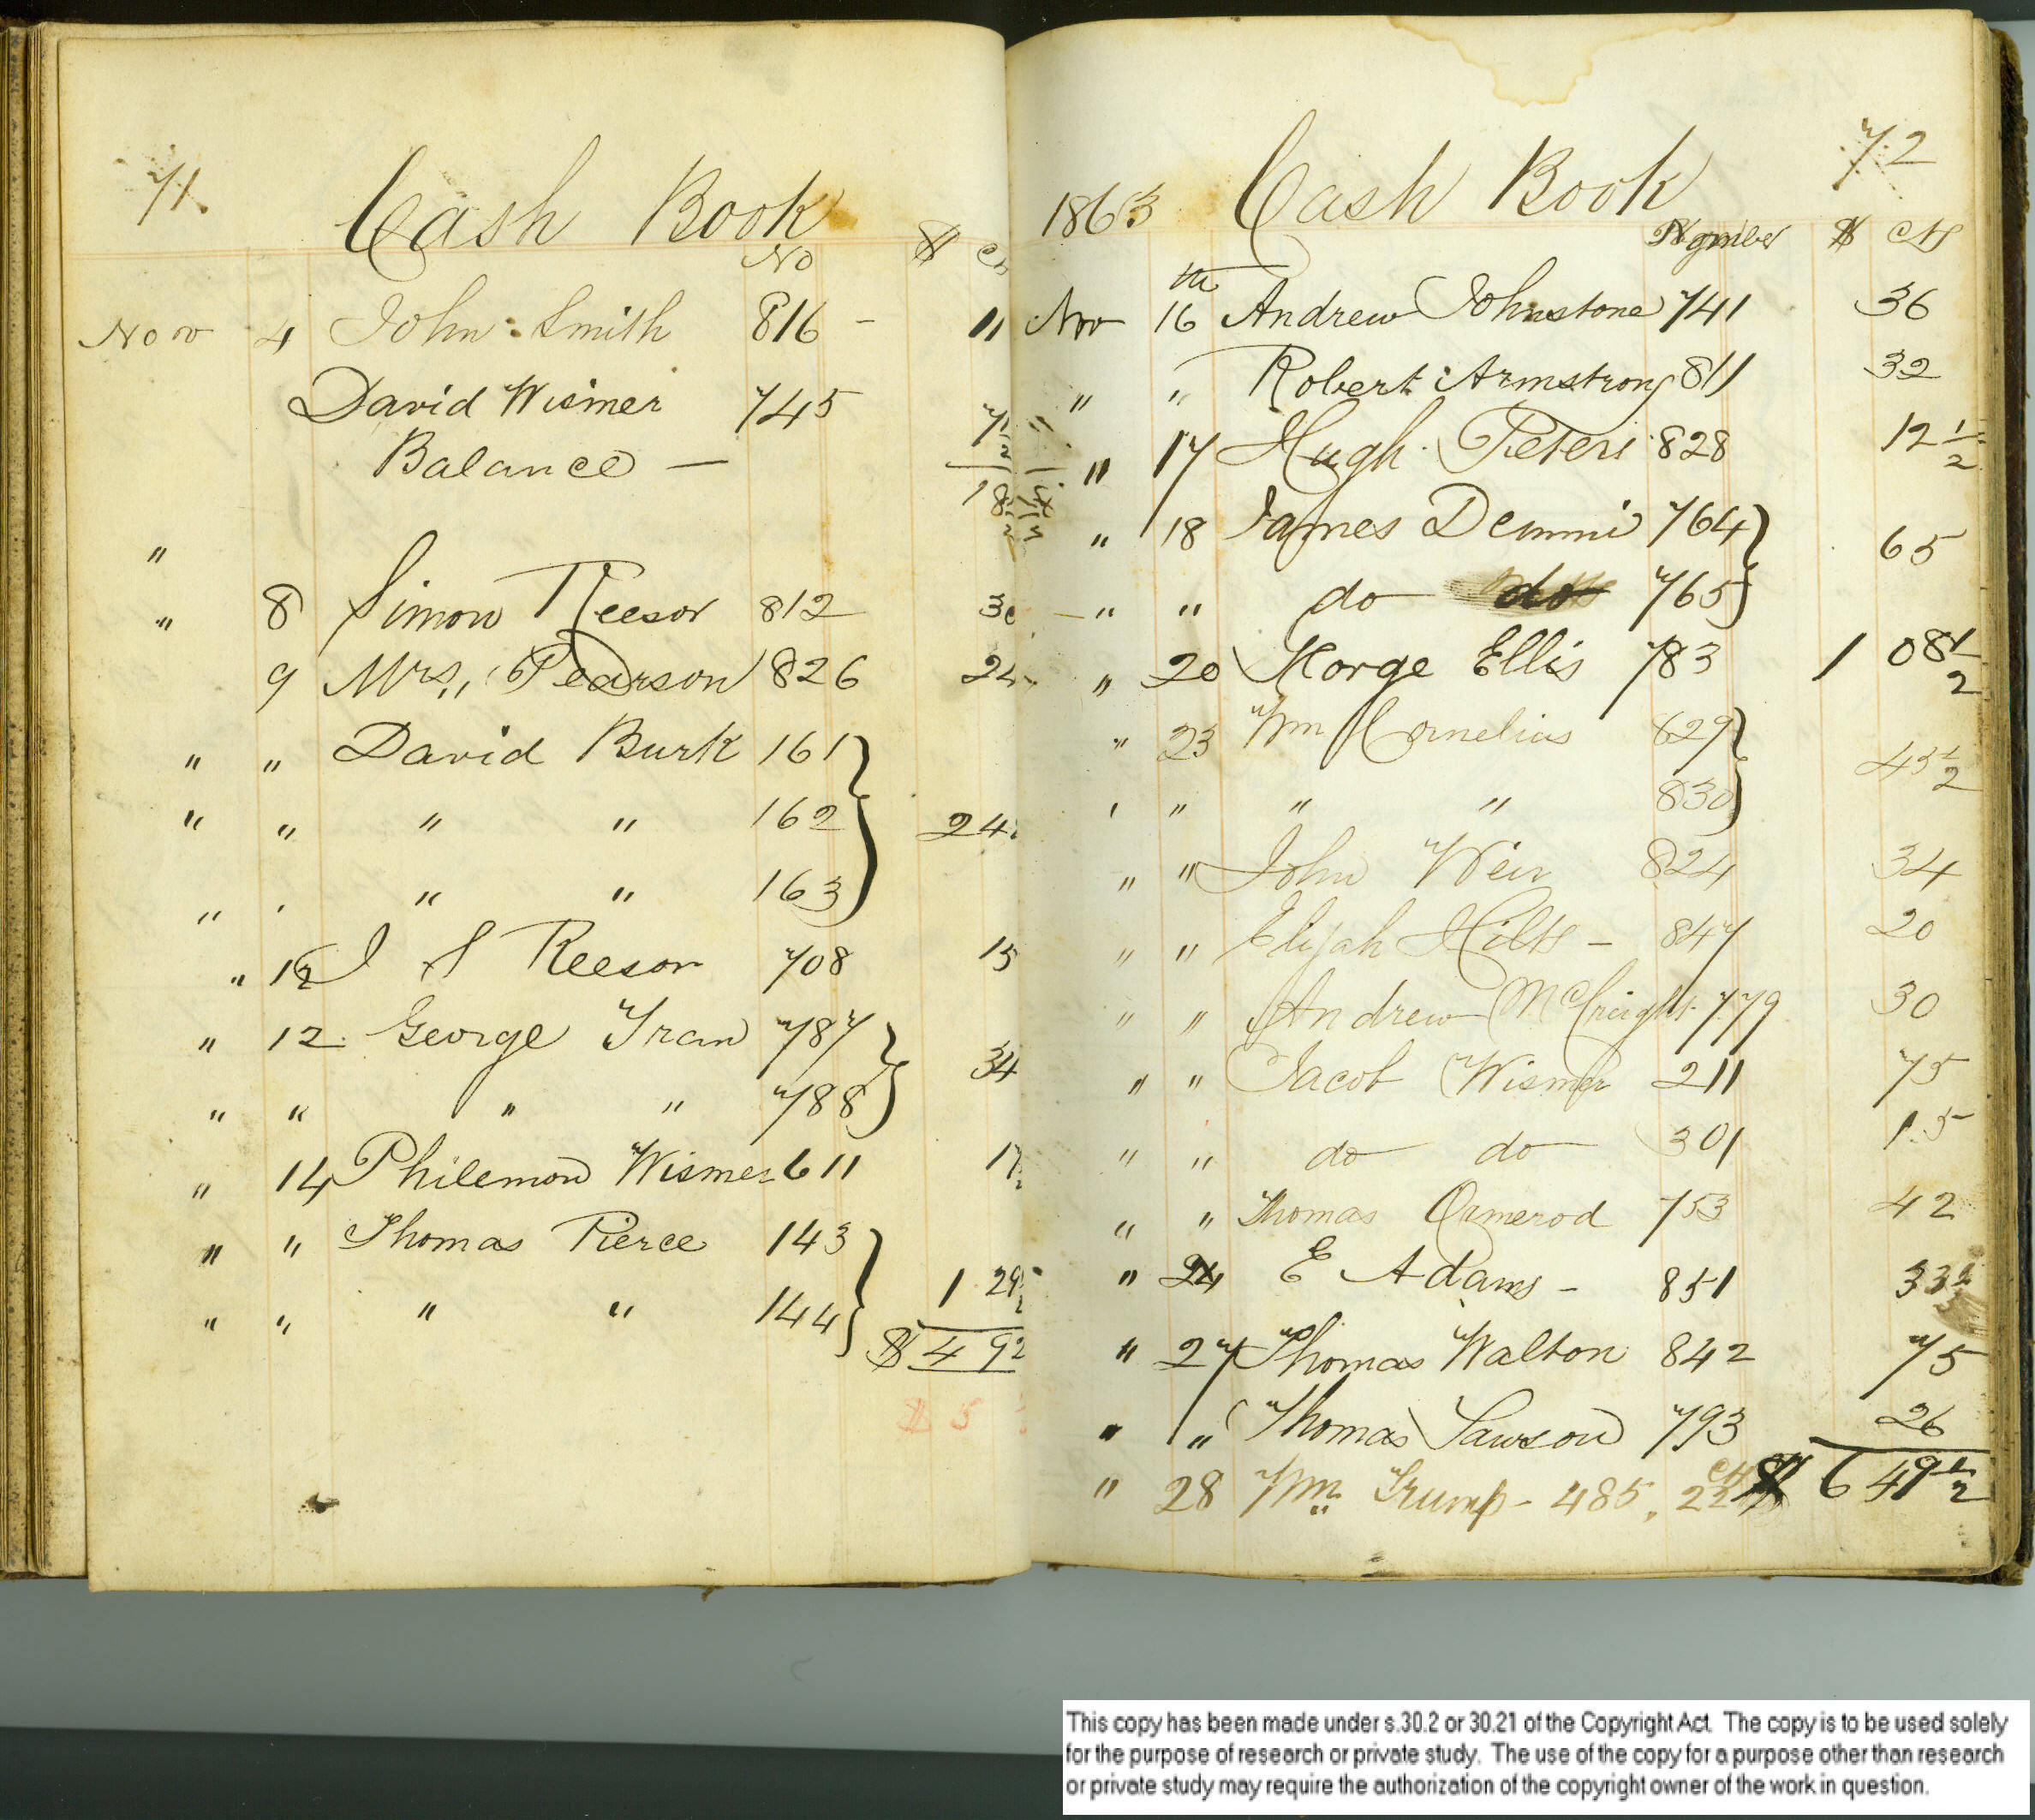 71.
Cash Book
No $ Cts
Nov 4 John Smith 816 - 11
David Wismer 745
Balance —
18
"
" 8 Simon Reesor 812 30
9 Mrs,, Pearson 826 24
" " David Burk 161
" " " " 162 } 24
" " " 163
" 12 J S Reesor 708 15
" 12 George Tran 787
34
" " " " 788 }
" 14 Philemon Wismer 611 17
" " Thomas Pierce 143
1 29
" " " " 144 }
$ 4 92
$ 5
72
1863 Cash Book
Number $ cts
Nov 16th Andrew Johnstone 741 36
" " Robert Armstrong 811 32
" 17 Hugh Peters 828 12 1/2
" 18 James Demmi 764
65
" " do do 765 }
" 20 George Ellis 783 1 08 1/2
" 23 Wm Cornelius 829
43 1/2
" " " " 830 }
" " John Weir 824 34
" " Elijah Hilts - 847 20
" " Andrew McCreight 779 30
" " Jacob Wismer 211 75
" " do do 301 1.5
" " Thomas Ormerod 753 42
" 24 E Adams - 851 33 1/2
" 27 Thomas Walton 842 75
" " Thomas Lawson 793 26
$ 6 49 1/2
" 28 Wm Trump - 485. 22 cts
This copy has been made under s.30.2 or 30.21 of the Copyright Act. The copy is to be used solely
for the purpose of research or private study. The use of the copy for a purpose other than research
or private study may require the authorization of the copyright owner of the work in question.